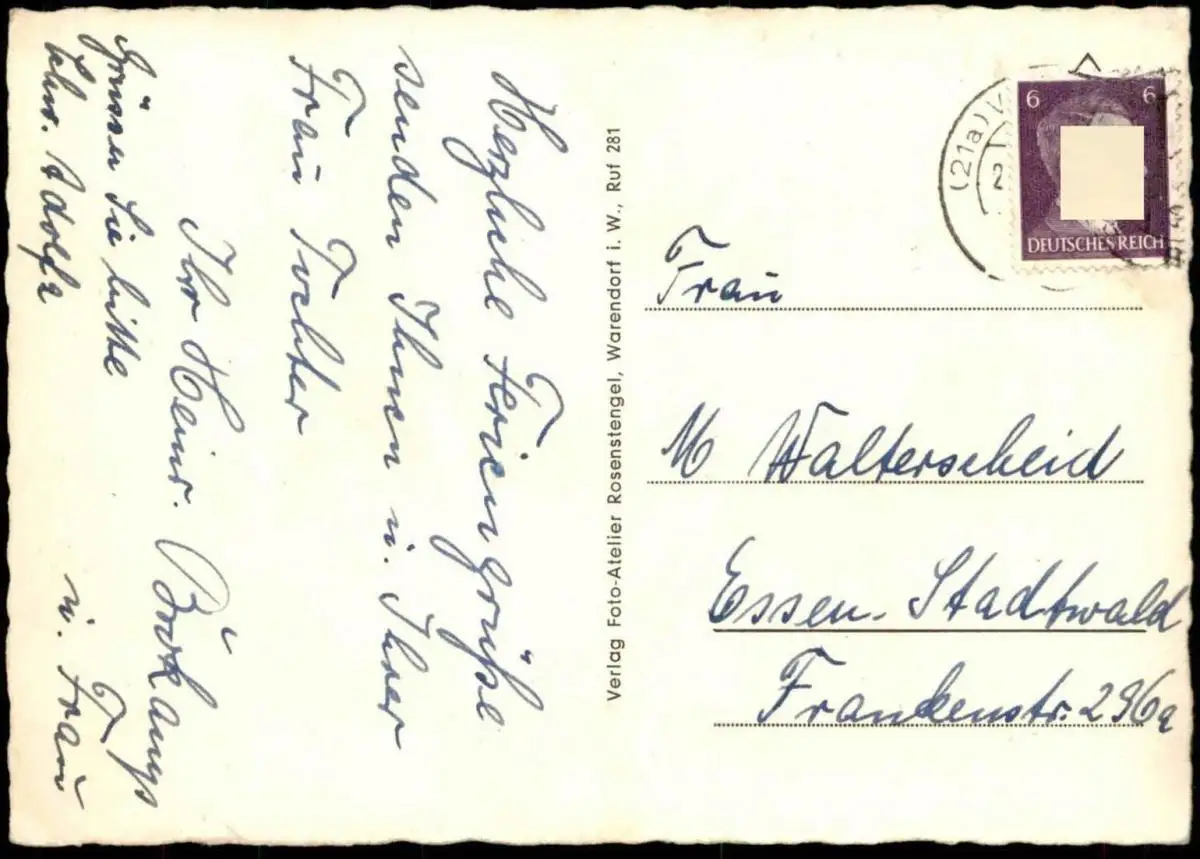 Herzliche Feriengrüße
senden Ihnen u. Ihrer
Frau Tochter
Ihr Heinr.
u. Frau
Grüssen Sie bitte
Schw. Adolfa
Verlag Foto-Atelier Rosenstengel, Warendorf i. W., Ruf 281
(21a)
2
6 6
DEUTSCHES REICH
Frau
M Walterscheid
Essen-Stadtwald
Frankenstr. 296a